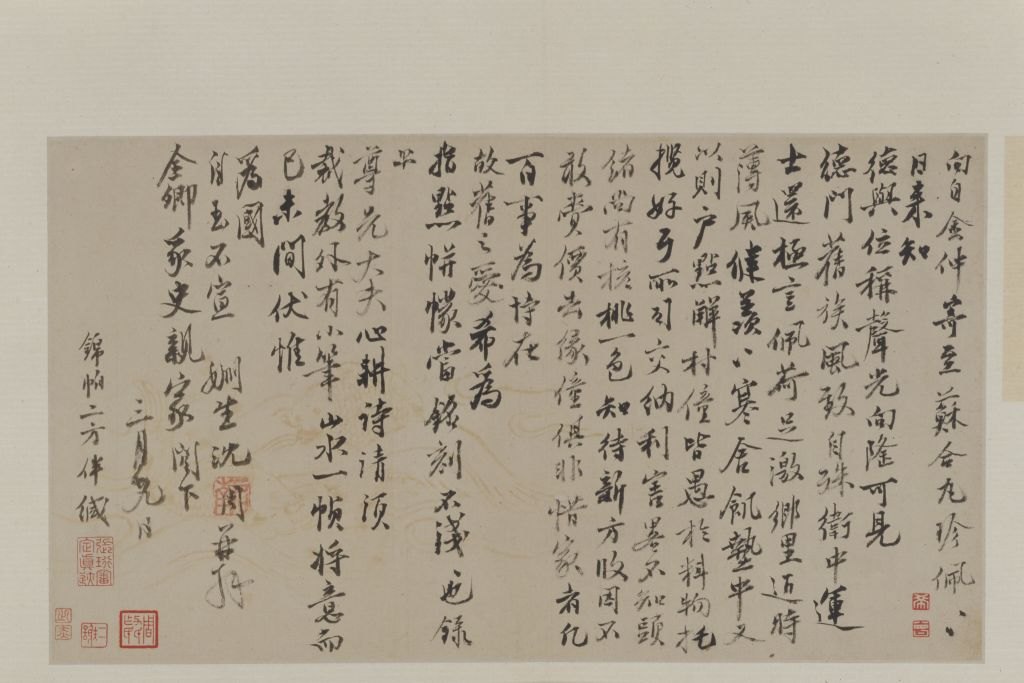 向自金仲寄至蘇合九珍佩〻
日来知
德與位稱聲光向隆可見
德門舊族風致自殊衛中運
士還極言佩荷足激鄉里近時
薄風健羨〻寒舍飢墊中又
以則戶點解村僮皆愚於料物托
攬好弓所引交納利害畧不知頭
緒尚有核桃一色知待新方收因不
敢費價去緣僮俱非惜家者凡
百事為恃在
故舊之愛希為
指點帡幪當銘刻不淺也録
上
尊兄大夫心耕詩請須
裁教外有小筆山水一幀將意而
已未間伏惟
為國
自玉不宣 姻生沈周再拜
全卿家史親家閣下
三月九日
錦帕二方伴緘